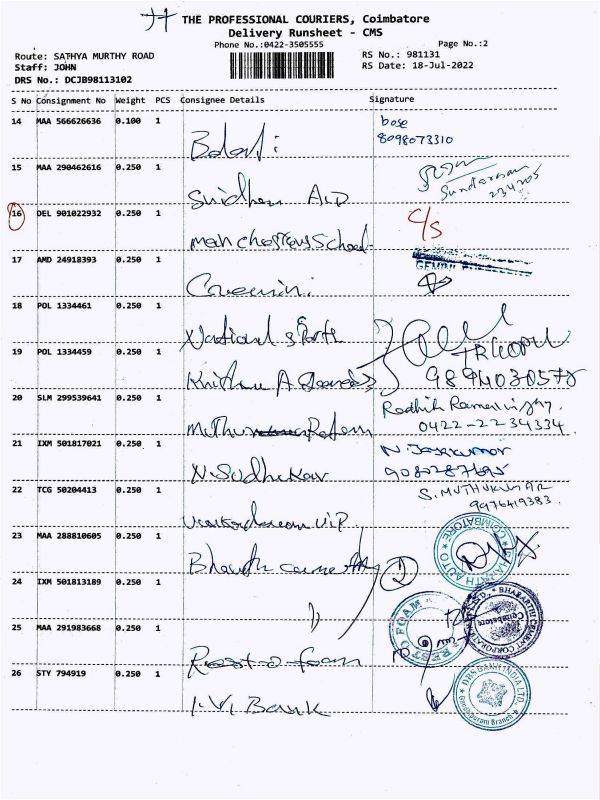 THE PROFESSIONAL COURIERS, Coimbatore
Delivery Runsheet - CMS
Phone No.:0422-3505555 Page No.:2
Route: SATHYA MURTHY ROAD RS No.: 981131
Staff: JOHN RS Date: 18-Jul-2022
DRS No.: DCJB98113102
S No Consignment No Weight PCS Consignee Details Signature
14 MAA 566626636 0.100 1 bose
8098073310
Balaji
15 MAA 290462616 0.250 1
Sundaresan
234205
16 DEL 901022932 0.250 1 C/S
Manchester School
17 AMD 24918393 0.250 1
GEMINI
Gemini
18 POL 1334461 0.250 1
National Sports
19 POL 1334459 0.250 1
9894030578
20 SLM 299539641 0.250 1 Radhik
0422-2234334
21 IXM 501817021 0.250 1 N. Jayakumar
N. Sudhakar
22 TCG 50204413 0.250 1 S. MUTHUKUMAR
9976419383
23 MAA 288810605 0.250 1
BHARATH AUTO COIMBATORE
24 IXM 501813189 0.250 1
BHARATHI CEMENT CORPORATION
Coimbatore
25 MAA 291983668 0.250 1
REST O FOAM
Rest o foam
26 STY 794919 0.250 1
DBS BANK INDIA LTD.
Branch
Bank